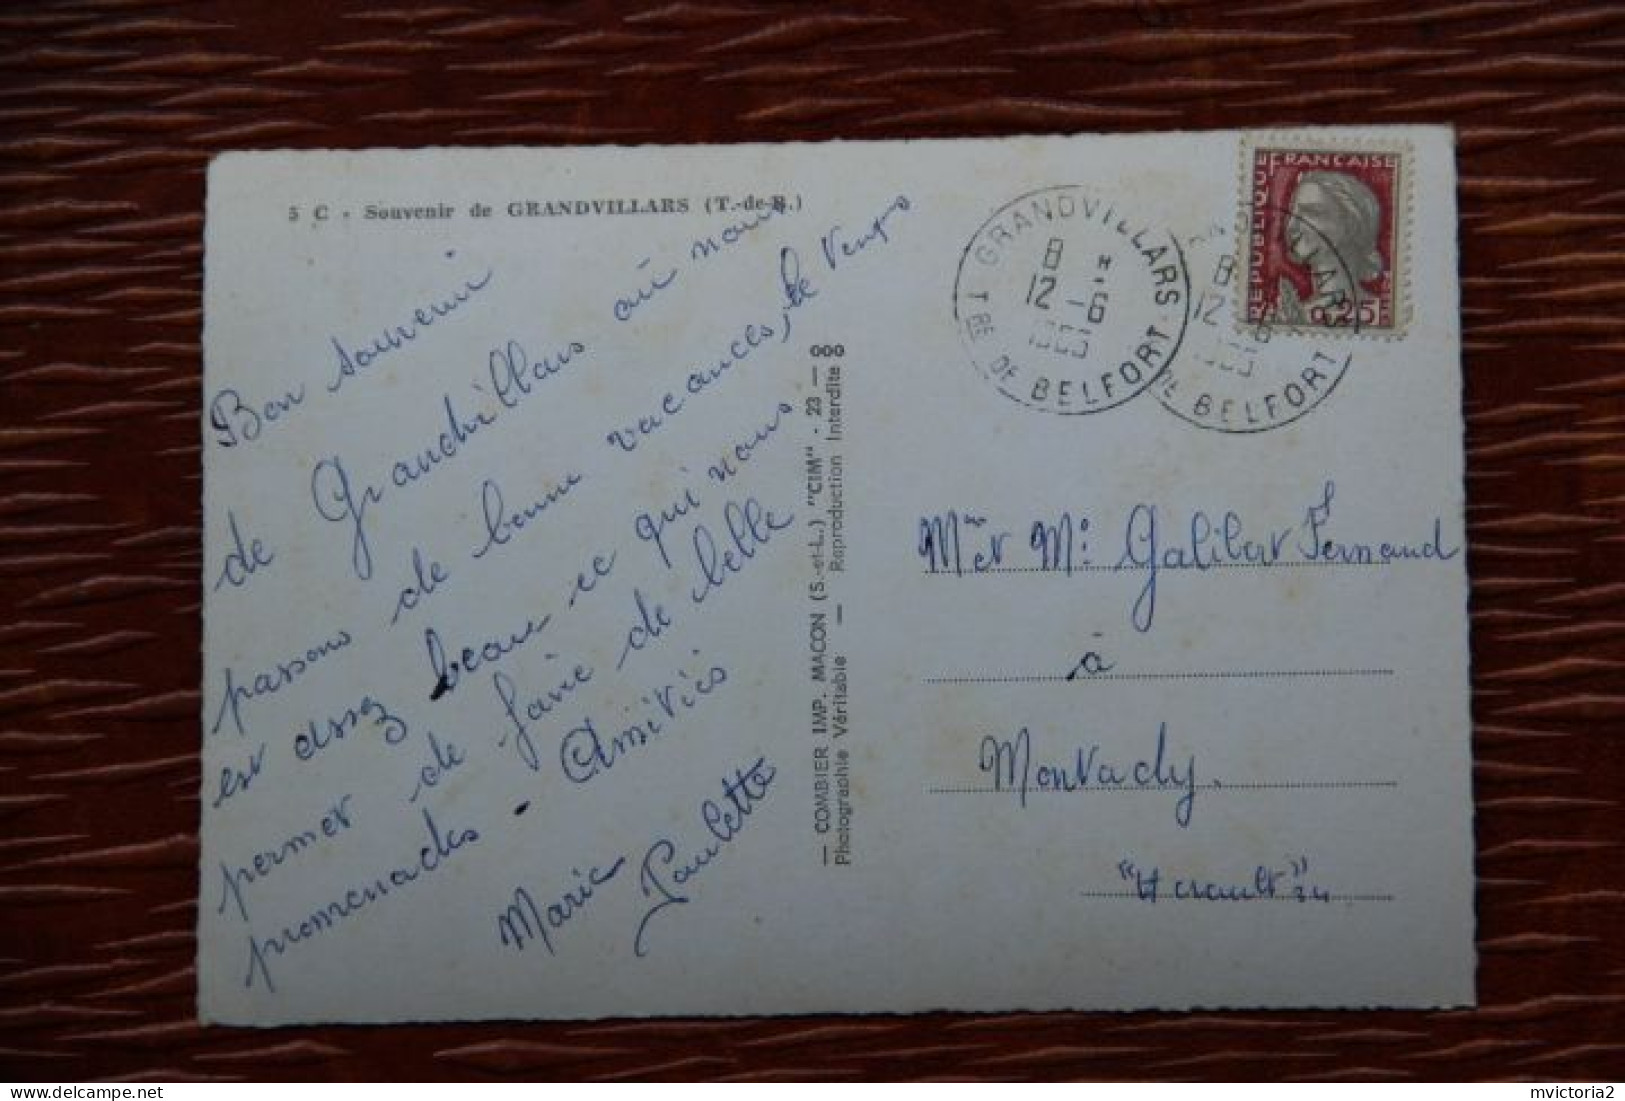 5 C - Souvenir de GRANDVILLARS (T.-de-B.)
Bon souvenir
de Grandvillars où nous
passons de bonne vacances, le temps
est assez beau ce qui nous
permet de faire de belle
promenades - Amitiés
Marie
Paulette
— COMBIER IMP. MACON (S.-et-L.) "CIM" - 23 — 000
Photographie Véritable — Reproduction Interdite
GRANDVILLARS
8 H
12 -6
TRE DE BELFORT
8
12 -6
RE DE BELFORT
REPUBLIQUE FRANCAISE
0,25
Mr et Me Galibert Fernand
à
Montady.
"Herault" 34
mvictoria2